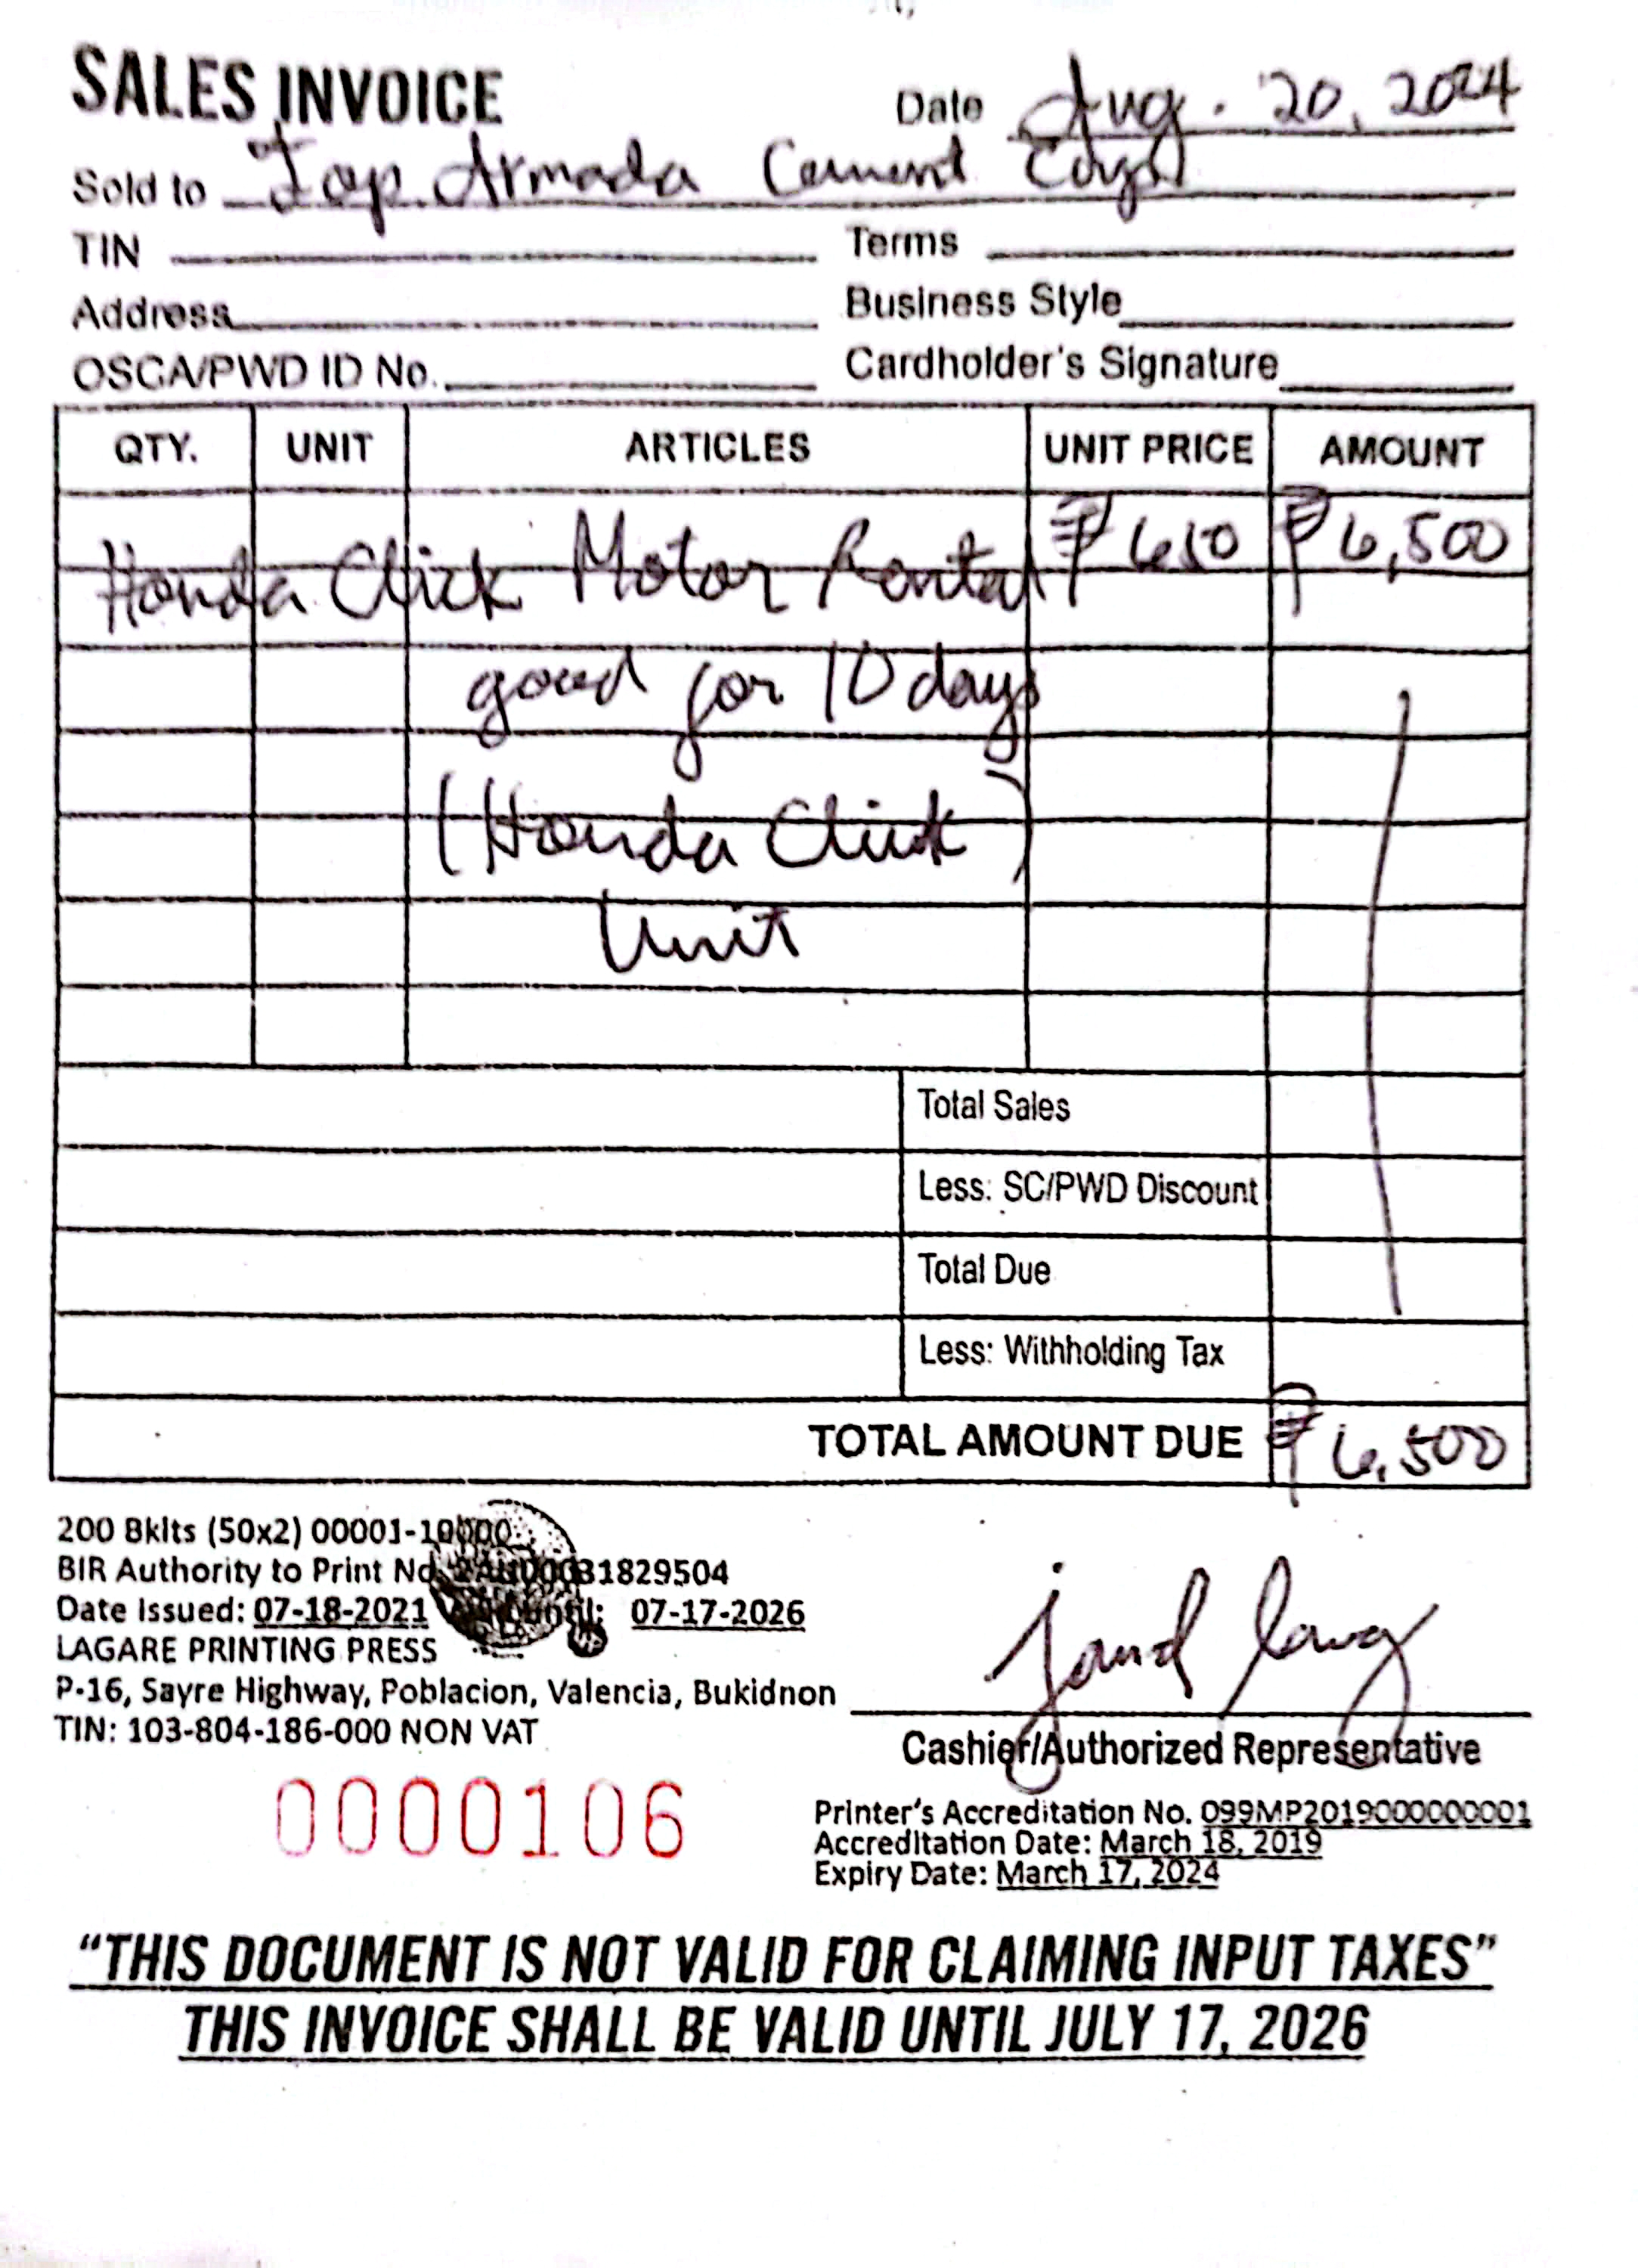 SALES INVOICE
Date Aug. 20, 2024
Sold to Top Armada Cement Corp
TIN Terms
Address Business Style
OSCA/PWD ID No. Cardholder's Signature
QTY. UNIT ARTICLES UNIT PRICE AMOUNT
Honda Click Motor Rental ₱ 650 ₱ 6,500
good for 10 days
(Honda Click)
Unit
Total Sales
Less: SC/PWD Discount
Total Due
Less: Withholding Tax
TOTAL AMOUNT DUE ₱ 6,500
200 Bklts (50x2) 00001-10000
BIR Authority to Print No. 31829504
Date Issued: 07-18-2021 07-17-2026
LAGARE PRINTING PRESS
P-16, Sayre Highway, Poblacion, Valencia, Bukidnon
TIN: 103-804-186-000 NON VAT
Cashier/Authorized Representative
0000106
Printer's Accreditation No. 099MP2019000000001
Accreditation Date: March 18, 2019
Expiry Date: March 17, 2024
"THIS DOCUMENT IS NOT VALID FOR CLAIMING INPUT TAXES"
THIS INVOICE SHALL BE VALID UNTIL JULY 17, 2026